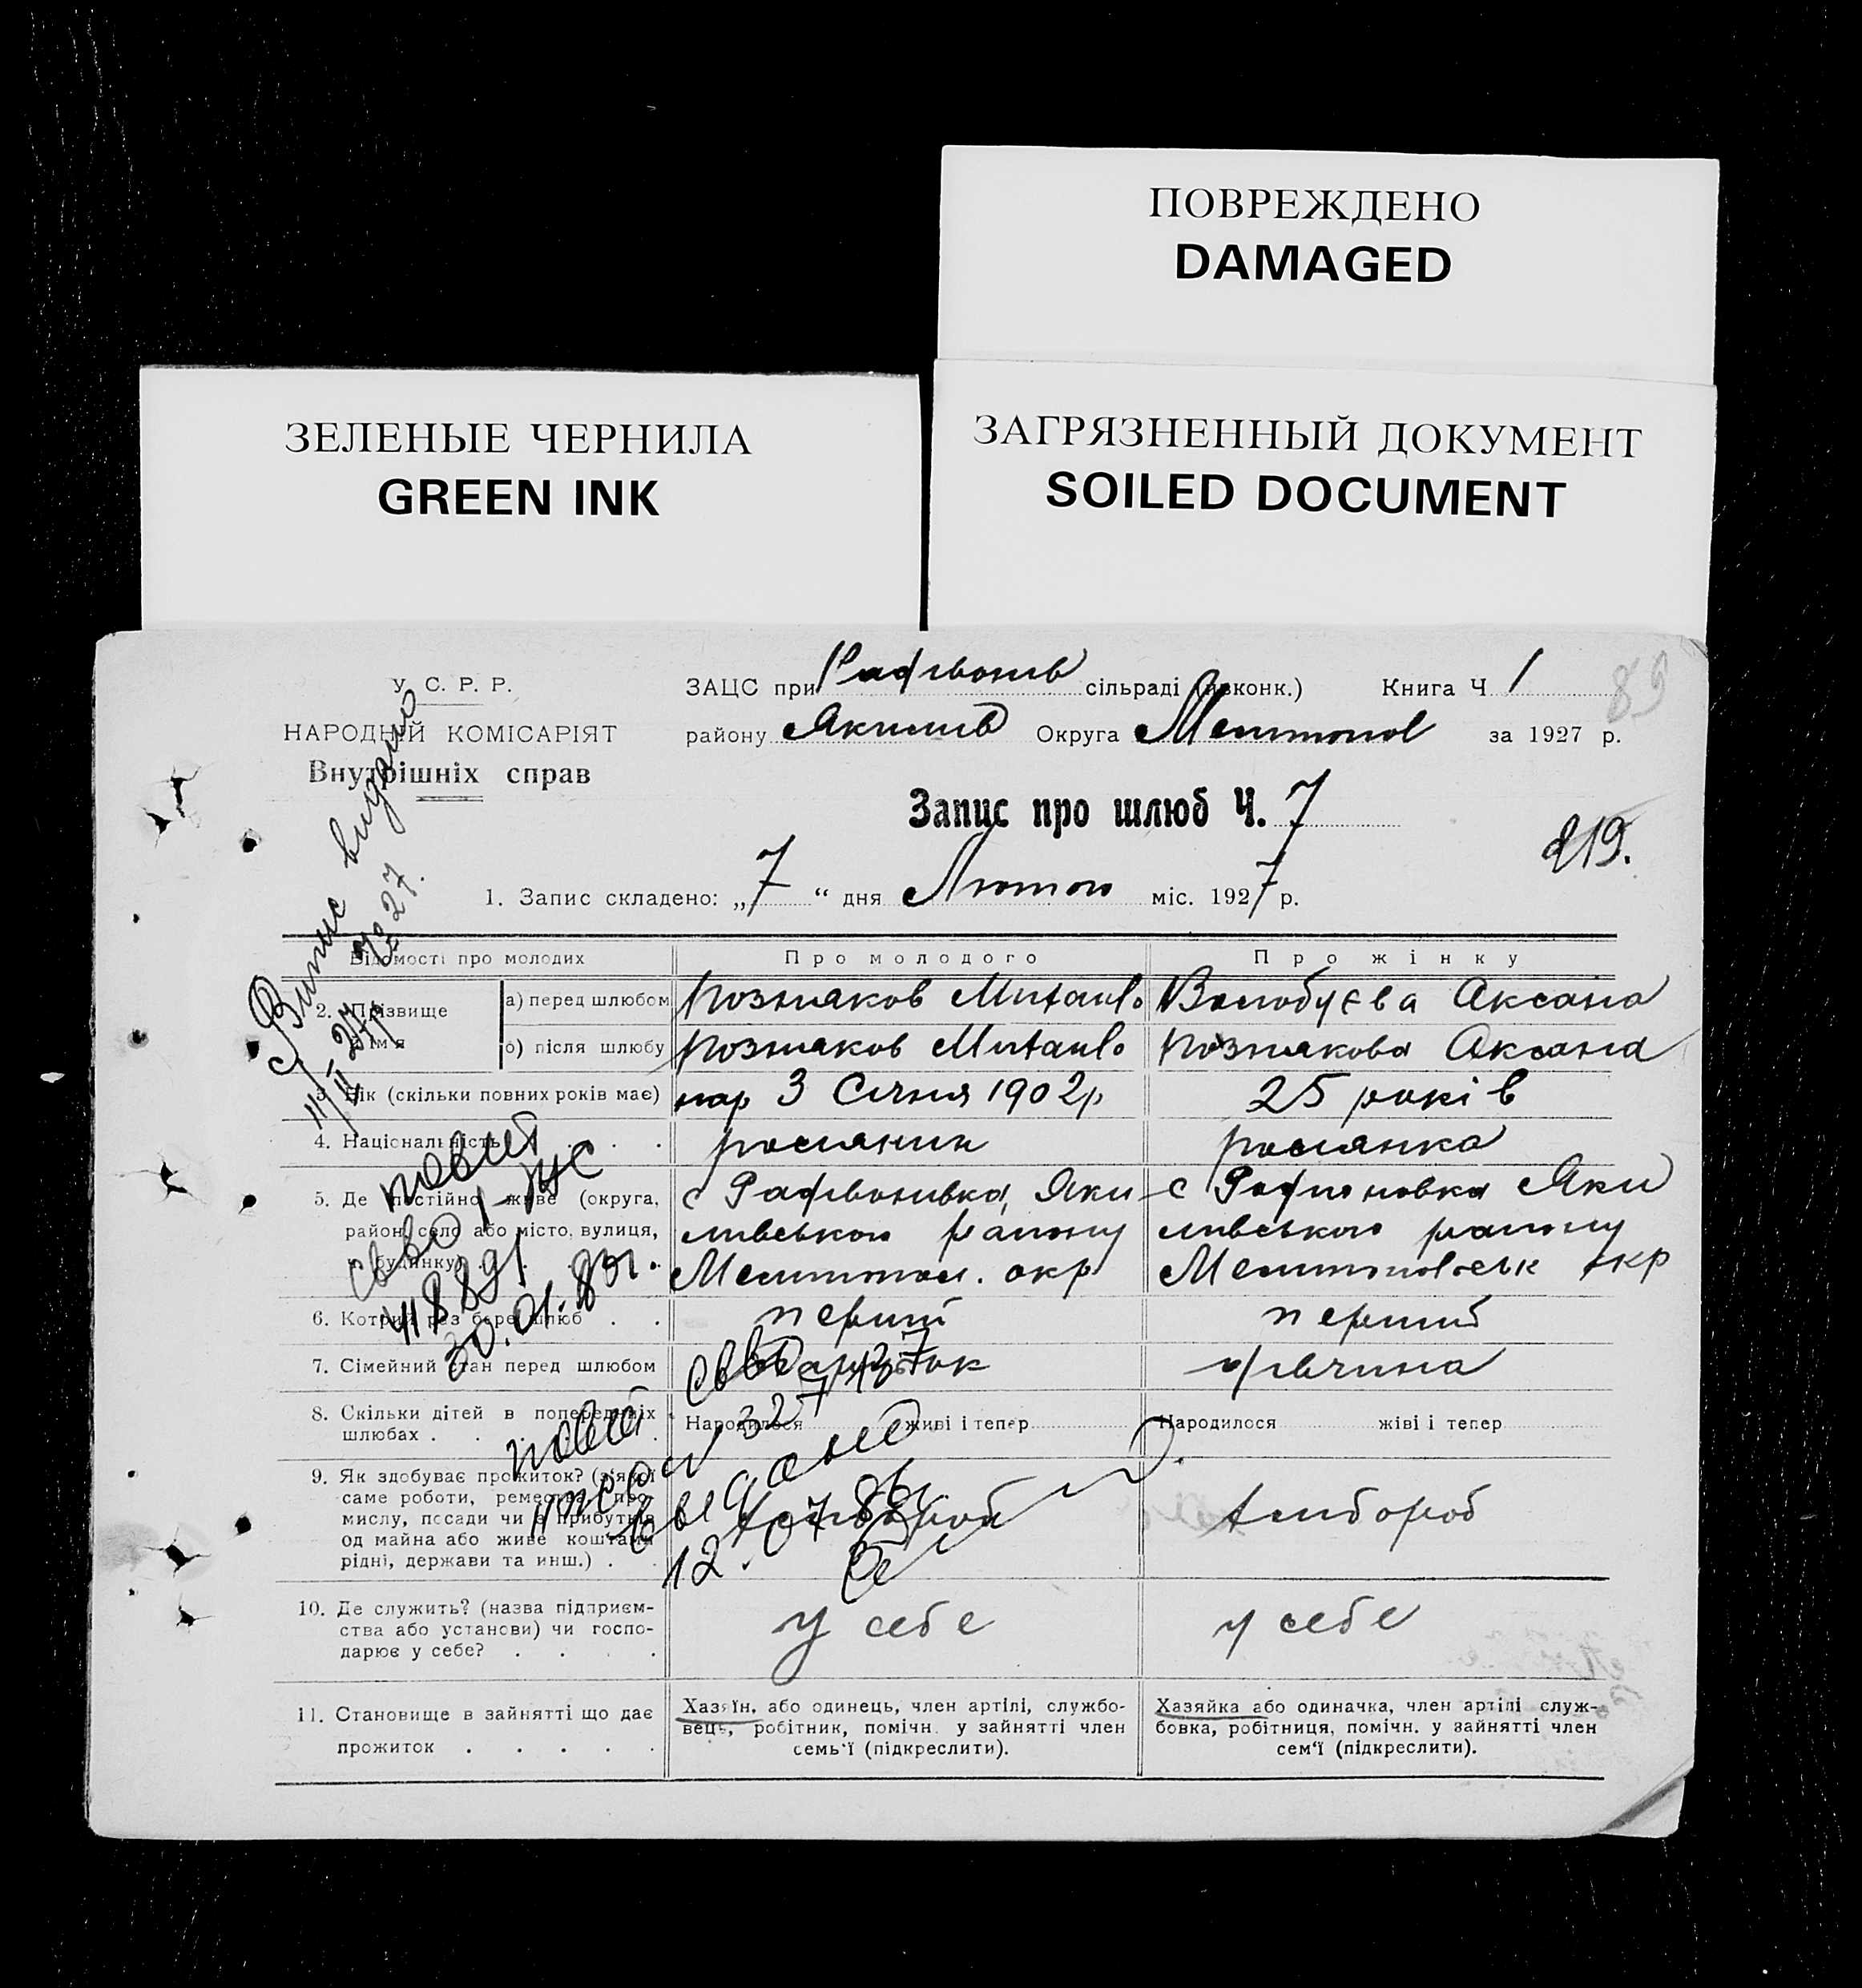 ПОВРЕЖДЕНО
DAMAGED
ЗЕЛЕНЫЕ ЧЕРНИЛА
GREEN INK
ЗАГРЯЗНЕННЫЙ ДОКУМЕНТ
SOILED DOCUMENT
У. С. Р. Р.
НАРОДНІЙ КОМІСАРІЯТ
Внутрішніх справ
ЗАЦС при сільраді (  ) Книга Ч 1
89
району Якимів Округа Мелитопол за 1927 р.
Запис про шлюб Ч. 7
219.
1. Запис складено: „7“ дня Лютого міс. 1927 р.
Відомості про молодих
Про молодого
Про жінку
2. Прізвище й ім'я
а) перед шлюбом
Позняков Михайло
Волобуєва Аксана
б) після шлюбу
Позняков Михайло
Познякова Аксана
3. Вік (скільки повних років має)
нар 3 Січня 1902 р
25 років
4. Національність
росіянин
росіянка
5. Де постійно живе (округа,
район, село або місто, вулиця,
ч. будинку)
с Радивонивка, Яки
мивського району
Мелитопол. окр
с Яки
мивського району
окр
6. Котрий раз бере шлюб
перший
перший
7. Сімейний стан перед шлюбом
дівчина
8. Скільки дітей в попередніх
шлюбах
Народилося живі і тепер
Народилося жіві і тепер
9. Як здобуває прожиток? (з якої
саме роботи, ремества, про-
мислу, посади чи з прибутків
од майна або живе коштами
рідні, держави та инш.)
хлібороб
хлібороб
10. Де служить? (назва підприєм-
ства або установи) чи госпо-
дарює у себе?
у себе
у себе
11. Становище в зайнятті що дає
прожиток
Хазяїн, або одинець, член артілі, службо-
вець, робітник, помічн. у зайнятті член
семь'ї (підкреслити).
Хазяйка або одиначка, член артілі служ-
бовка, робітниця, помічн. у зайнятті член
сем'ї (підкреслити).
Випис видано
11/II 27 р
№ 27.
повт
св во
418891
30.01.80г.
повт
327
выдано
12.07.